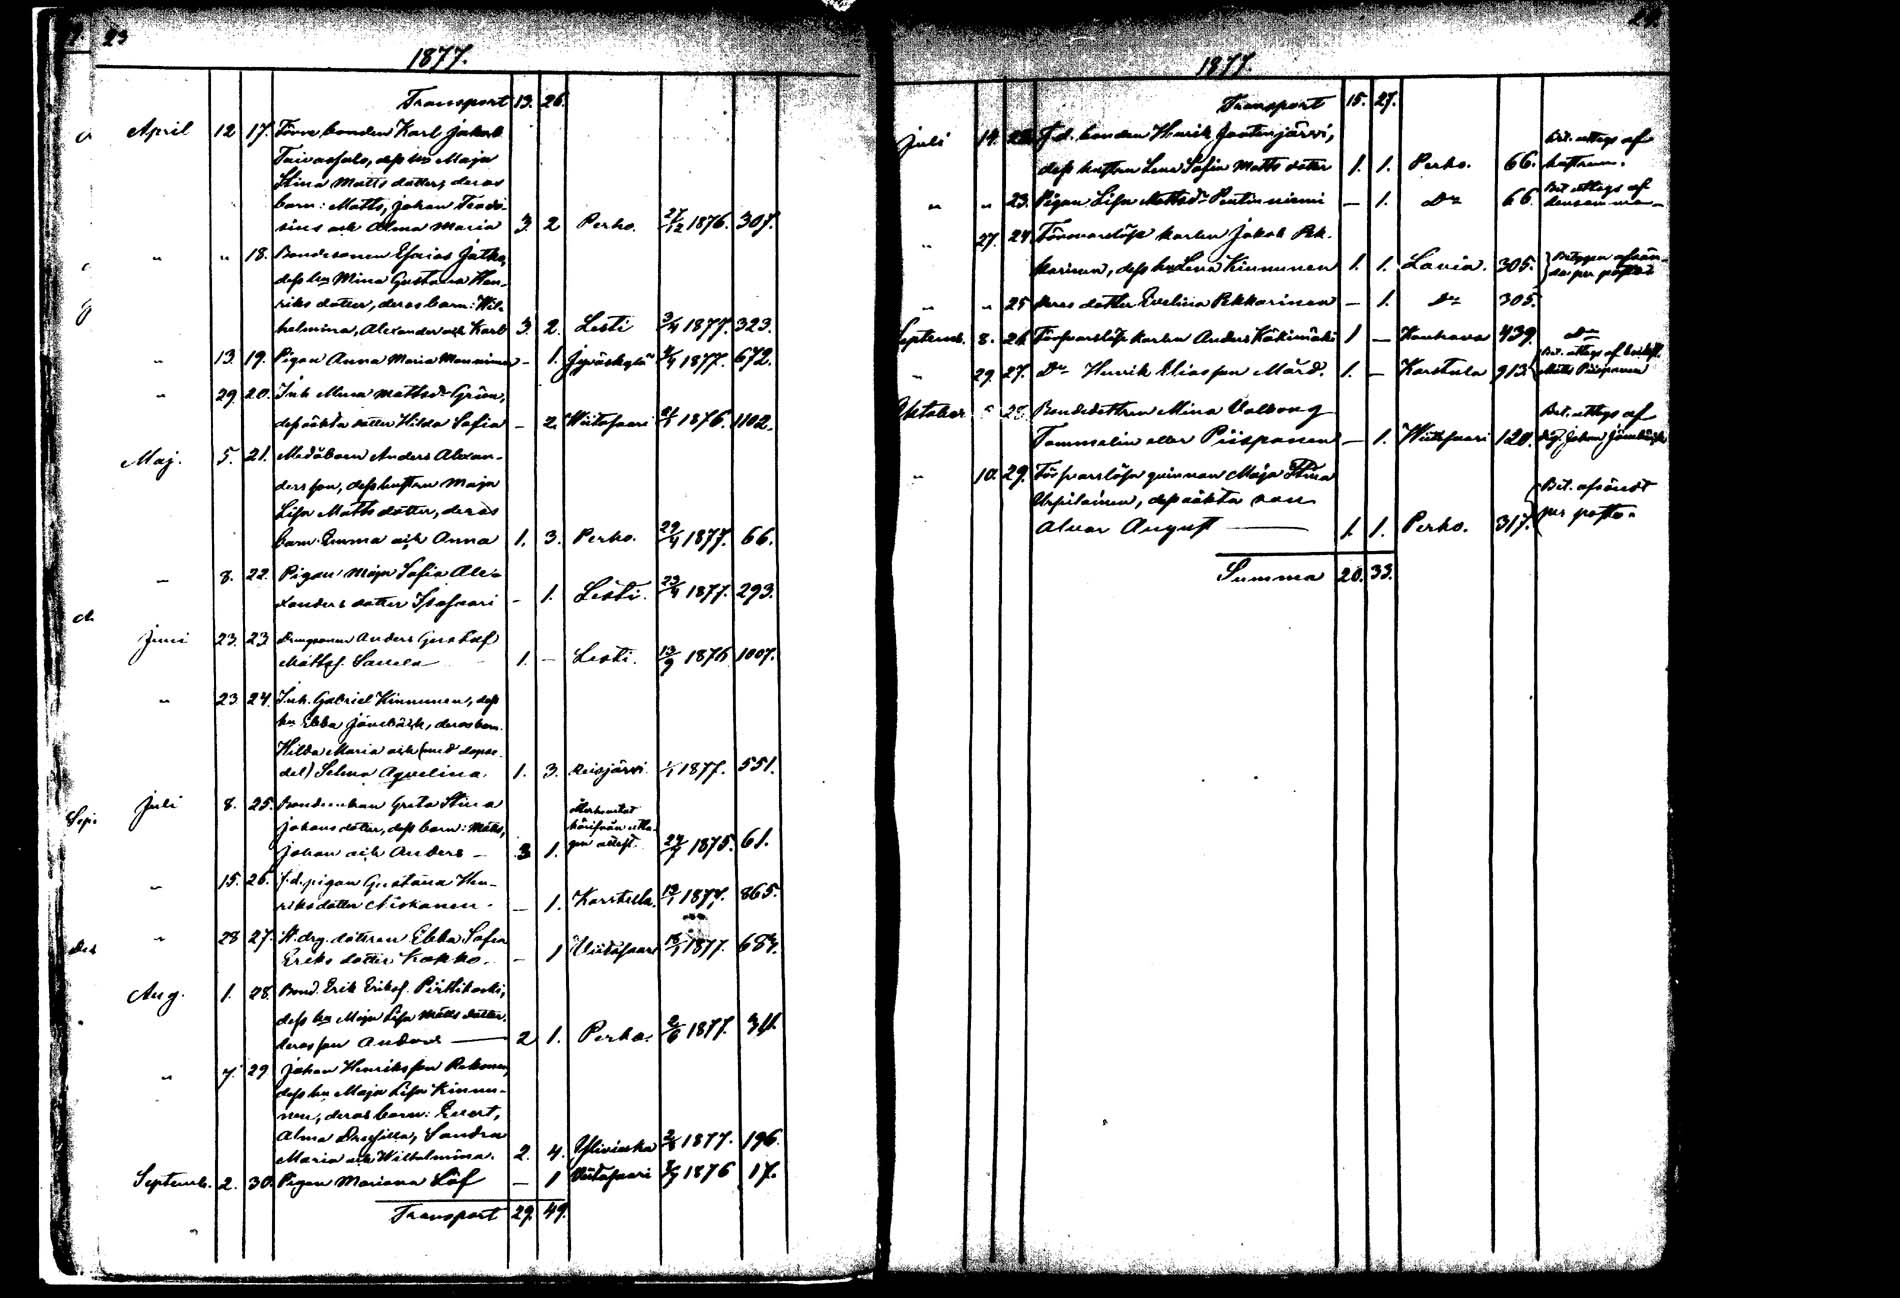 23
1877.
Transport 13. 26.
April 12 17. Förre bonden Karl Jakob
Taivassalo, dess hu Maja
Stina Matts dotter, deras
barn: Matts, Johan Teodo-
sius och Alma Maria 3. 2 Perho. 27/12 1876. 307.
" " 18. Bondesonen Esaias Jatko,
dess hu Mina Gustava Hen-
riks dotter, deras barn: Wil-
helmina, Alexander och Karl 3. 2. Lesti 3/4 1877. 323.
" 13. 19. Pigan Anna Maria Manninen - 1. Jyväskylä 4/4 1877. 672.
" 29. 20. Inh. Mina Mattsdr Grön,
dess oäkta dotter Hilda Sofia - 2. Wiitasaari 1876. 1102.
Maj. 5. 21. Anders Alexan-
dersson, dess hustru Maja
Lisa Matts dotter, deras
barn: Emma och Anna 1. 3. Perho. 29/4 1877. 66.
" 8. 22. Pigan Maja Sofia Alex-
anders dotter Isosaari - 1. Lesti. 23/4 1877. 293.
Juni 23. 23. Drengsonen Anders Gustaf
Mattss. 1. - Lesti. 13/9 1876 1007.
" 23 24. Inh. Gabriel Kinnunen, dess
hu Ebba Jänebäck, deras barn.
Hilda Maria och (med dopse-
del) Selma Aqvelina. 1. 3. Reisjärvi. 1877. 551.
Juli 8. 25. Bondeenkan Greta Stina
Johans dotter, dess barn: Matts,
Johan och Anders - 3 1. Återkommit härifrån utta-
gen attest. 1875. 61.
" 15. 26. f.d. pigan Gustava Hen-
riks dotter Niskanen. - 1. Karstula. 1877. 865.
" 28 27. St. drg. dottren Ebba Sofia
Eriks dotter Kokko. - 1 Wiitasaari 1877. 683.
Aug. 1. 28. Bond. Erik Erikss.
dess hu Maja Lisa Matts dotter.
deras son Anders 2 1. Perho. 2/6 1877. 311.
" 7. 29 Johan Henriksson Rekonen,
dess hu Maja Lisa Kinnu-
nen, deras barn: Evert,
Alma Drusilla, Sandra
Maria och Wilhelmina. 2. 4. Ylivieska 1877. 196.
Septemb. 2. 30. Pigan Mariana Löf - 1 Wiitasaari 1876 17.
Transport 29. 49.
1877.
Transport 15. 27.
Juli 14. 22. f.d. bonden Henrik Jootenjärvi,
dess hustru Lena Sofia Matts dotter 1. 1. Perho. 66. Bet. uttogs af
hustrun.
" " 23. Pigan Lisa Mattsdr Pentinniemi - 1. Do 66. Bet. uttogs af
densamma -
" 27. 24. Försvarslöse karlen Jakob Pek-
karinen, dess hu Lena Kinnunen 1. 1. Lavia. 305. Betygen afsän-
das per posto
" " 25 deras dotter Evelina Pekkarinen - 1. Do 305.
Septemb. 8. 26. Försvarslöse karlen Anders Käkimäki 1 - Kauhava 439. Do
" 29. 27. Do Henrik Eliasson Mård. 1. - Karstula 913. Bet. uttogs af
Matts Piispanen
Oktober 28. Bondedottren Mina Valborg
Tammelin eller Piispanen - 1. Wiitasaari 120. Bet. uttogs af
drg. Johan Jänebäck
" 10. 29. Försvarslösa qvinnan Maja Stina
Urpilainen, dess oäkta son
Alvar August 1. 1. Perho. 317. Bet. afsändt
per posto.
Summa 20. 33.